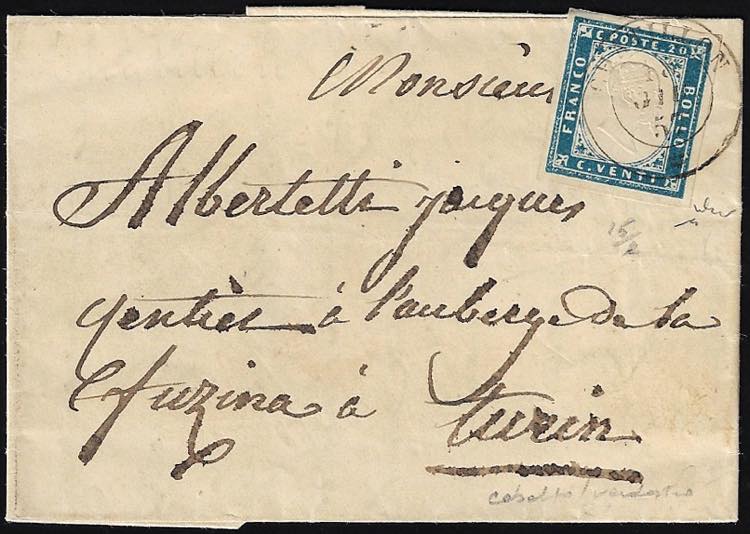 C. POSTE. 20
FRANCO
BOLLO
C. VENTI
Monsieur
Albertetti jacques
rentier à l'auberge de la
fuzina à
turin
15/2
cobalto verdastro